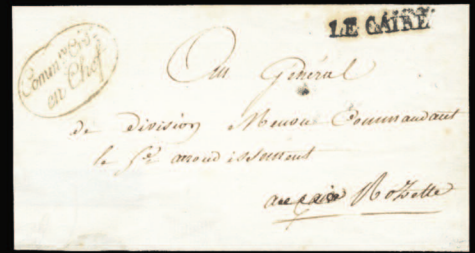 Comm.re Or.r
en Chef
LE CAIRE
Au Général
de division Menou Commandant
le 5e arrondissement
au Rozette